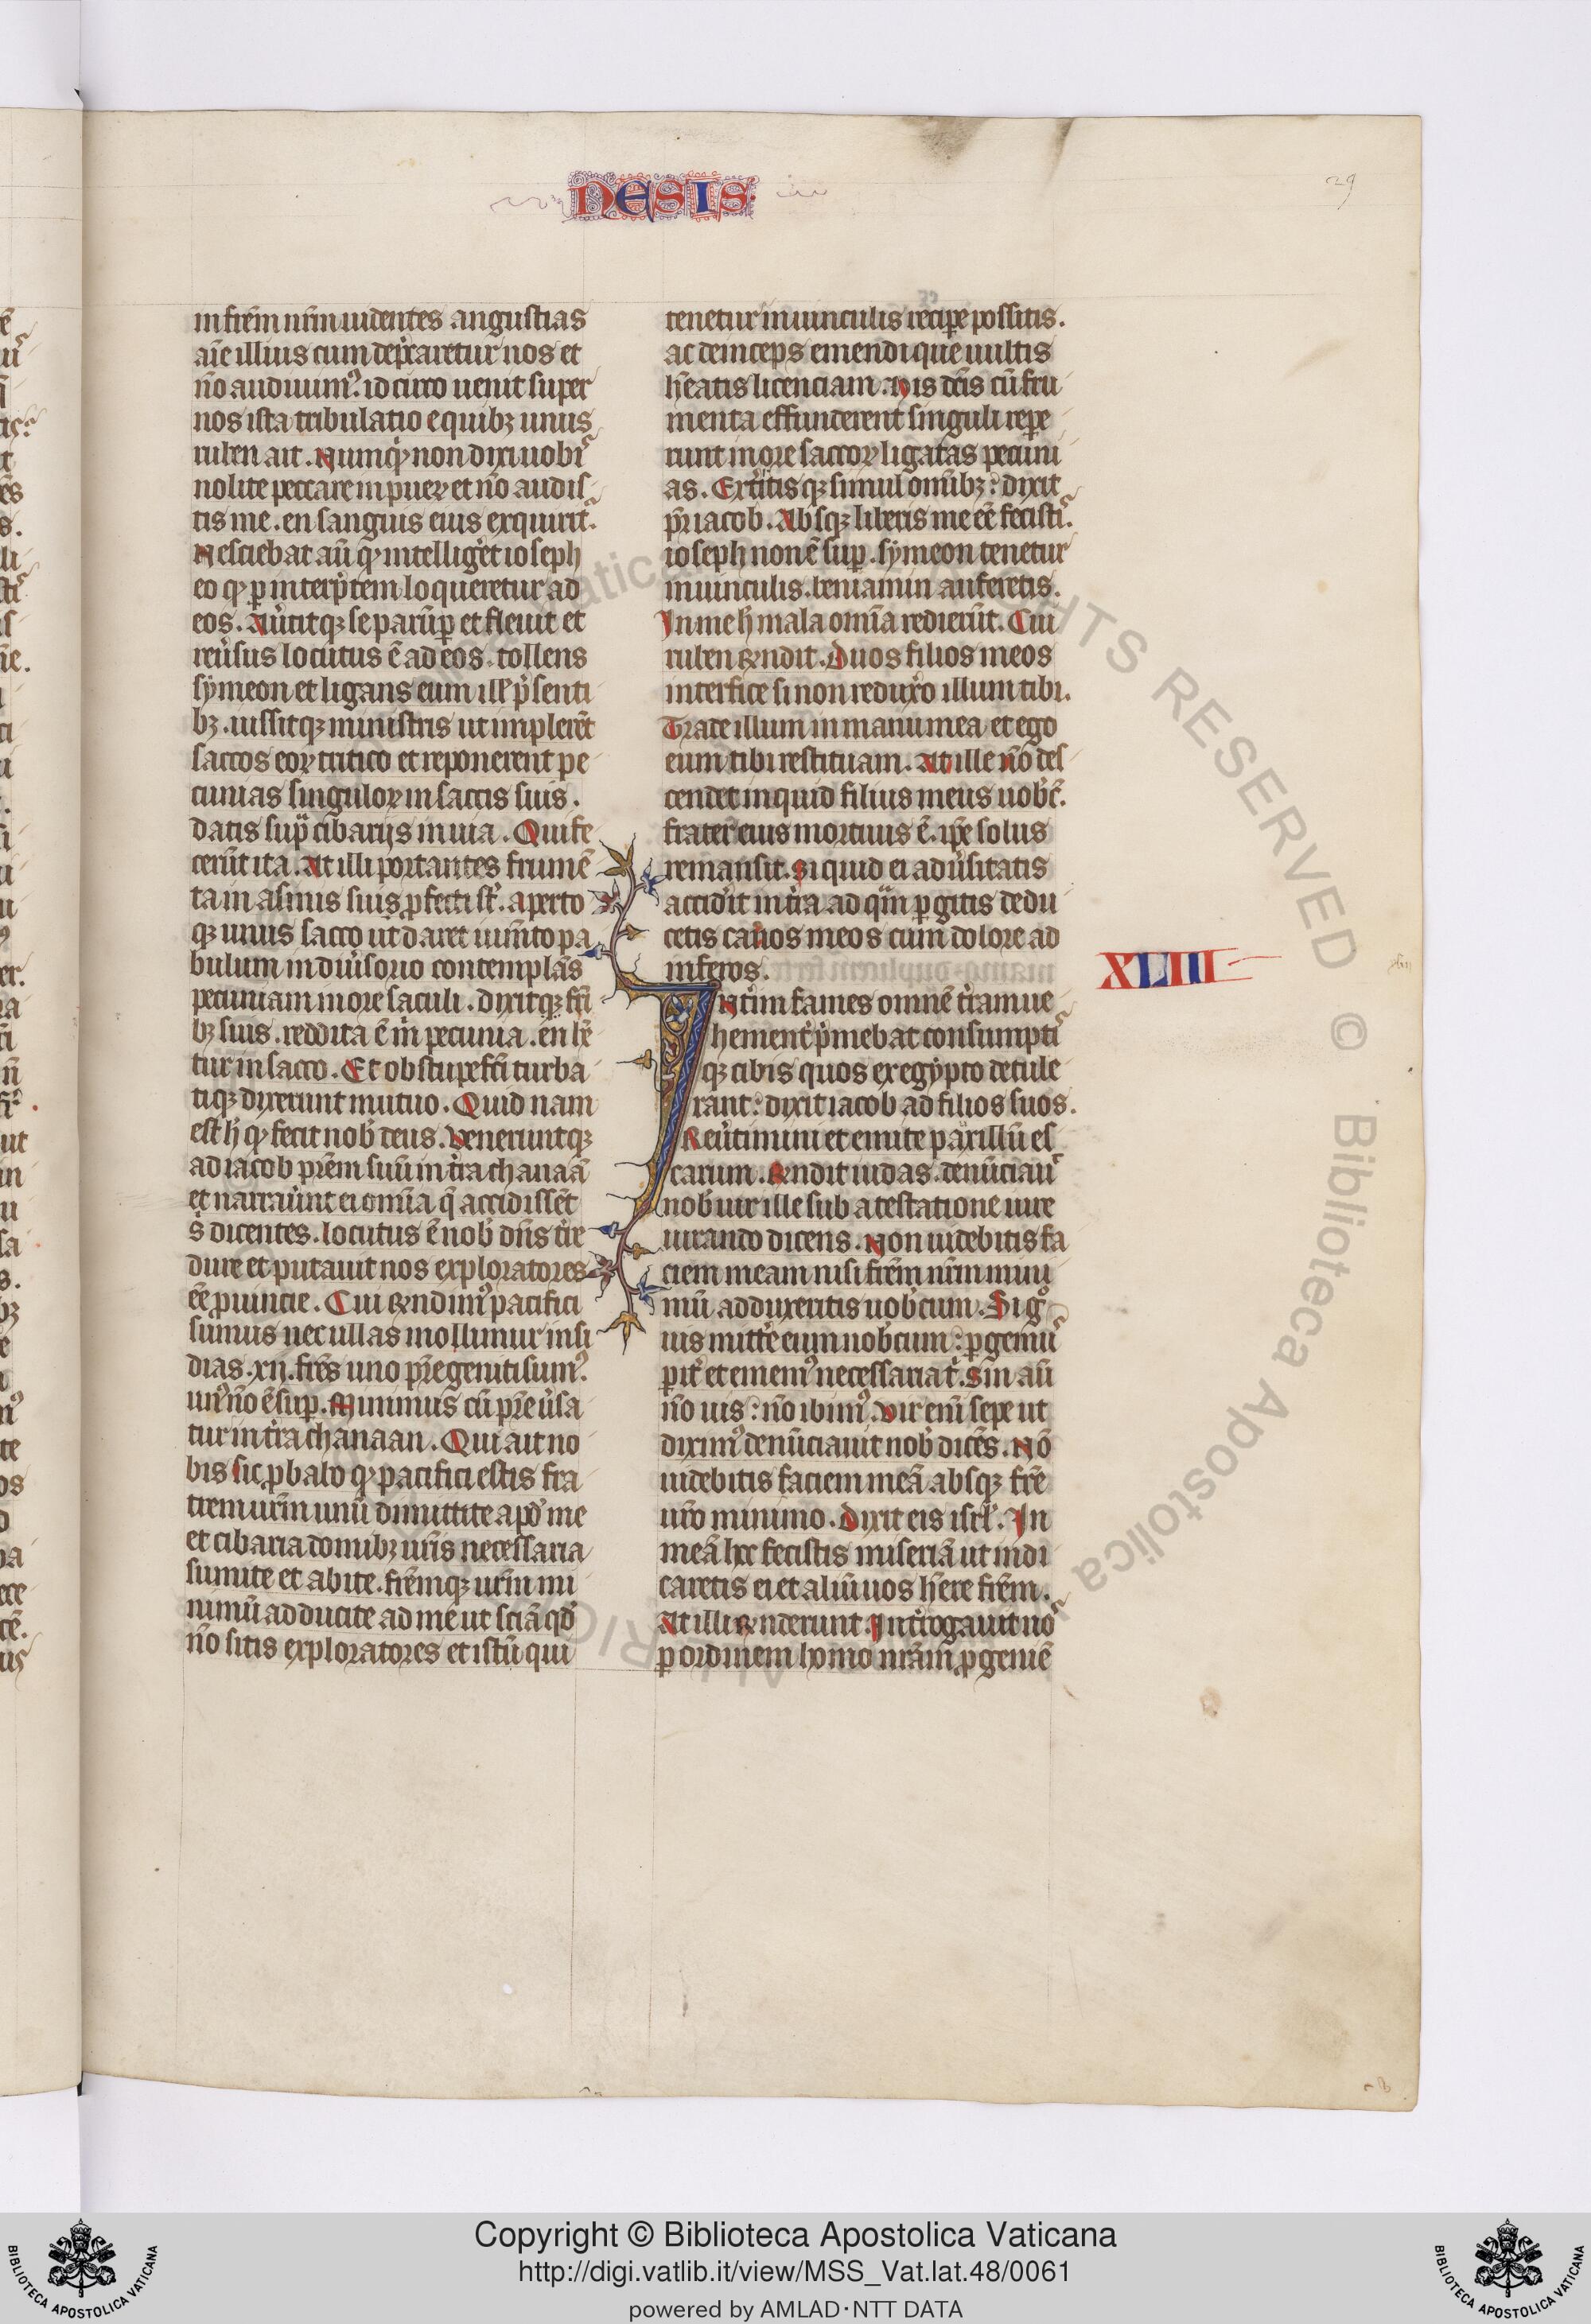 NESIS
29
in frēm nr̄m uidentes angustias
aīe illius cum dep̄caretur nos et
nō audiuimꝰ. idcirco uenit super
nos ista tribulatio e quibꝫ unus
ruben ait. Numqͥ non dixi uobis
nolite peccare in pueꝝ et nō audis
tis me. en sanguis eius exquirit᷑.
Nesciebat aū qꝫ intelligͤet ioseph
eo qꝫ ꝑ interp̄tem loqueretur ad
eos. Aūtitqꝫ se parūp̄ et fleuit et
reūsus locutus ē ad eos. tollens
sẏmeon et ligans eum ill̄ p̄senti
bꝫ. iussitqꝫ ministris ut implerēt
saccos eoꝝ tritico et reponerent pe
cunias singuloꝝ in saccis suis.
datis sup̄ cibarijs in uia. Qui fe
cerūt ita. At illi portantes frumē
ta in asinis suis ꝓfecti st̄. aperto
qꝫ unus sacco ut daret iumīto pa
bulum in diūsorio contemplās
pecuniam in ore saculi. dixitqꝫ fr̄i
bꝫ suis. reddita ē m̄ pecunia. en hē
tur in sacco. Et obstupefc̄i turba
tiqꝫ dixerunt mutuo. Quid nam
est h̄ qꝫ fecit nob̄ deus. Veneruntqꝫ
ad iacob pr̄em suū in t̄ra chanaā
et narraūnt ei omīa q̄ accidissēt
s̄ dicentes. locutus ē nob̄ dn̄s t̄re
dure et putauit nos exploratores
eē ꝓuincie. Cui R̄ndimꝰ pacifici
sumus nec ullas mollimur insi
dias. xii. frēs uno pr̄e geniti sumꝰ.
unꝰ nō ē sup̄. Minimus cū pr̄e ūsa
tur in t̄ra chanaan. Qui ait no
bis sic ꝓbabo qꝫ pacifici estis fra
trem ur̄m unū dimittite apd̓ me
et cibaria domibꝫ ur̄is necessaria
sumite et abite. frēmqꝫ ur̄m mi
nimū adducite ad me ut sciā qd̓
nō sitis exploratores et istū qui
tenetur in uinculis recipe possitis.
ac deinceps emendi que uultis
hēatis licenciam. His dc̄is cū fru
menta effunderent singuli repe
runt in ore saccoꝝ ligatas pecuni
as. Extͤitisqꝫ simul omībꝫ: dixit
pr̄ iacob. Absqꝫ liberis me eē fecistis.
ioseph non ē sup̄. sẏmeon tenetur
in uinculis. beniamin auferetis.
In me h̄ mala omīa redierūt. Cui
ruben R̄ndit. Duos filios meos
interfice si non reduxͦo illum tibi.
Trade illum in manu mea et ego
eum tibi restituam. At ille nō des
cendet inquid filius meus uob̄c̄.
frater eius mortuus ē. ip̄e solus
remansit. Si quid ei adūsitatis
accidͤit in t̄ra ad qͣm ꝑgitis dedu
cetis canos meos cum dolore ad
inferos.
XLIII
INtim fames omnē t̄ram ue
hementͤ p̄mebat consumptis
qꝫ cibis quos ex egẏpto detule
rant: dixit iacob ad filios suos.
Reūtimini et emite pauxillū es
carum. R̄ndit iudas. denūciauit
nob̄ uir ille sub atestatione iure
iurando dicens. Non uidebitis fa
ciem meam nisi frēm nr̄m mini
mū adduxeritis uob̄cum. Si gͦ
uis mittͤe eum nob̄cum: ꝑgemus
pit̄ et ememꝰ necessaria t̄. Sin aū
nō uis: nō ibimꝰ. Vir enī sepe ut
diximꝰ denūciauit nob̄ dicēs. Nō
uidebitis faciem meā absqꝫ fr̄e
ur̄o minimo. Dixit eis isrl̄. In
meā hoc fecistis miseriā ut indi
caretis ei et aliū uos hēre frēm.
At illi R̄nderunt. Intͤrogauit nos
ꝑ ordinem homo nr̄am ꝓgeniē
Copyright © Biblioteca Apostolica Vaticana
http://digi.vatlib.it/view/MSS_Vat.lat.48/0061
powered by AMLAD·NTT DATA
BIBLIOTECA APOSTOLICA VATICANA
BIBLIOTECA APOSTOLICA VATICANA